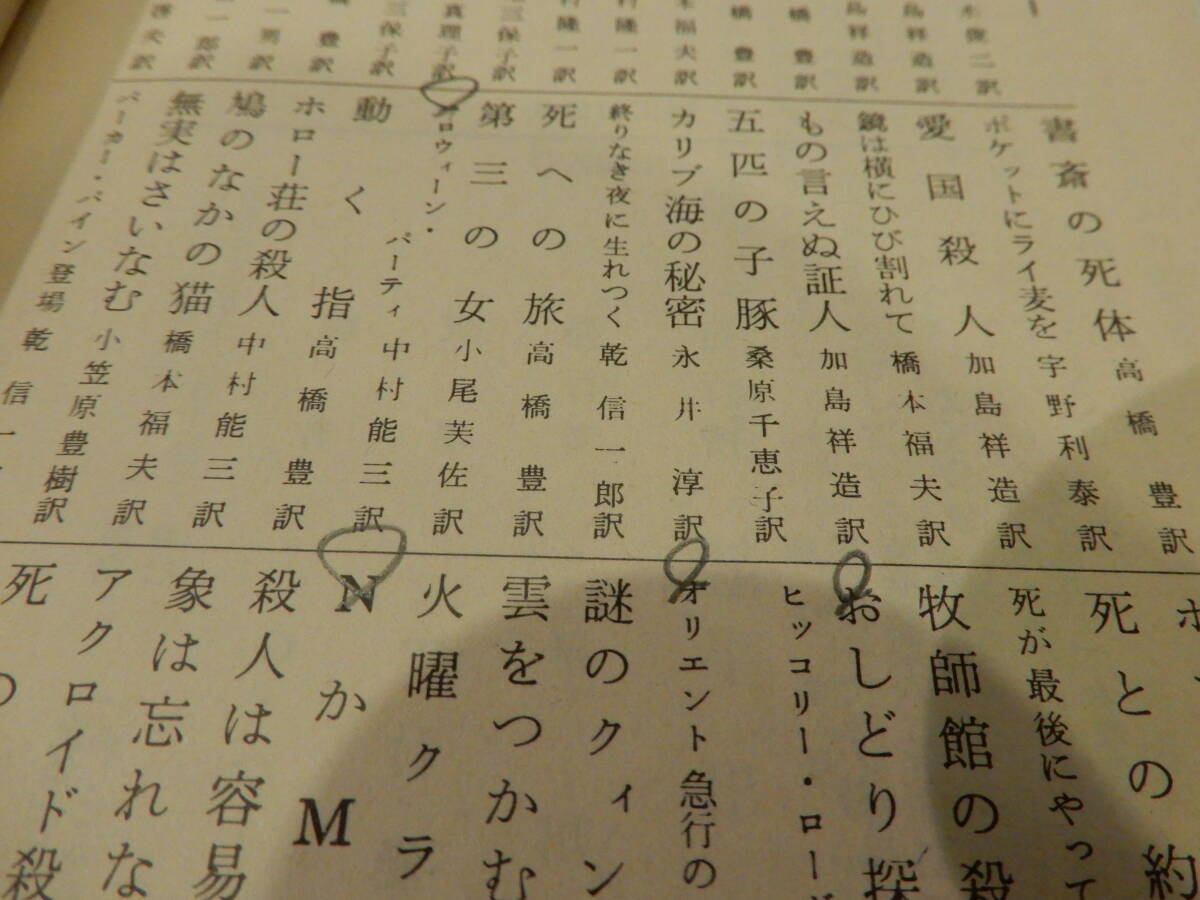 俊二訳
島祥造訳
島祥造訳
橋豊訳
橋豊訳
福夫訳
村隆一訳
村隆一訳
三保子訳
真理子訳
三保子訳
豊訳
一男訳
一郎訳
啓夫訳
書斎の死体 高橋豊訳
ポケットにライ麦を 宇野利泰訳
愛国殺人 加島祥造訳
鏡は横にひび割れて 橋本福夫訳
もの言えぬ証人 加島祥造訳
五匹の子豚 桑原千恵子訳
カリブ海の秘密 永井淳訳
終りなき夜に生れつく 乾信一郎訳
死への旅 高橋豊訳
第三の女 小尾芙佐訳
ハロウィーン・パーティ 中村能三訳
動く指 高橋豊訳
ホロー荘の殺人 中村能三訳
鳩のなかの猫 橋本福夫訳
無実はさいなむ 小笠原豊樹訳
パーカー・パイン登場 乾信一
死との約
死が最後にやって
牧師館の殺
おしどり探
ヒッコリー・ロード
オリエント急行の
謎のクィン
雲をつかむ
火曜クラ
NかM
殺人は容易
象は忘れな
アクロイド殺
死の